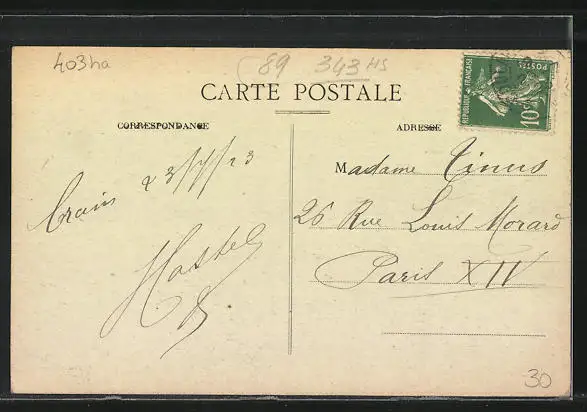 403ha
89 343 HS
CARTE POSTALE
CORRESPONDANCE
ADRESSE
RÉPUBLIQUE FRANÇAISE
POSTES
10c
Madame Tinus
26 Rue Louis Morard
Paris XIV
Crain 23/7/23
Hastel
30